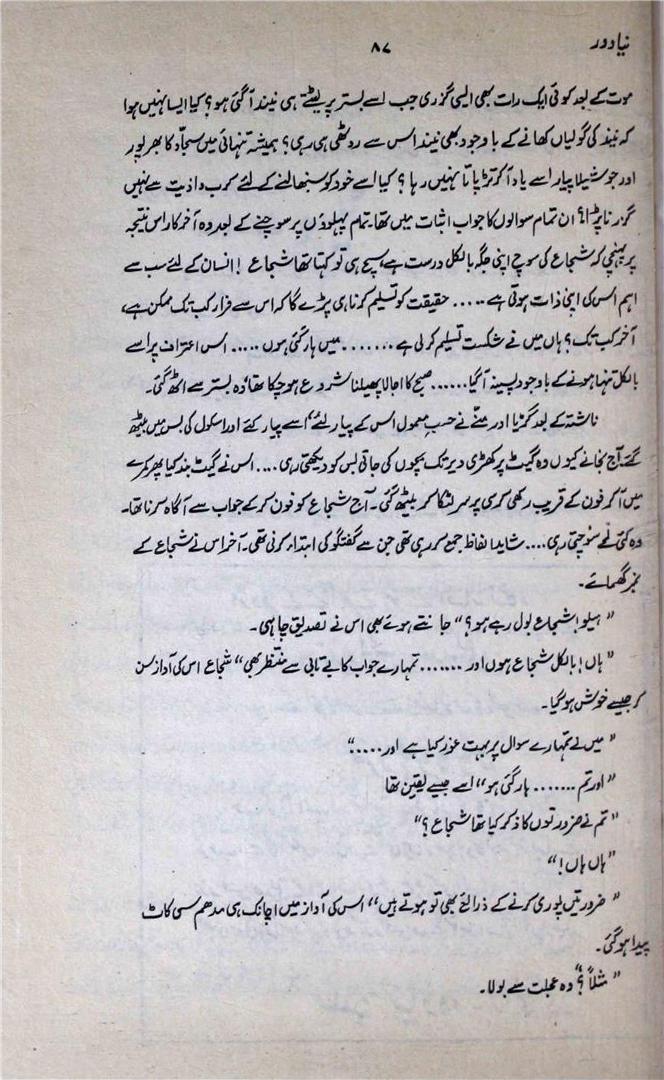 نیا دور
۸۷
موت کے بعد کوئی ایک رات بھی ایسی گزری جب اسے بستر پر لیٹتے ہی نیند آگئی ہو؟ کیا ایسا نہیں ہوا
کہ نیند کی گولیاں کھانے کے باوجود بھی نیند اس سے روٹھی ہی رہی؟ ہمیشہ تنہائی میں سجاد کا بھرپور
اور جوشیلا پیار اسے یاد آکر تڑپاتا نہیں رہا؟ کیا اسے خود کو سنبھالنے کے لئے کرب و اذیت سے نہیں
گزرنا پڑا؟ ان تمام سوالوں کا جواب اثبات میں تھا۔ تمام پہلوؤں پر سوچنے کے بعد وہ آخر کار اس نتیجہ
پر پہنچی کہ شجاع کی سوچ اپنی جگہ بالکل درست ہے، سچ ہی تو کہتا تھا شجاع ! انسان کے لئے سب سے
اہم اس کی اپنی ذات ہوتی ہے ..... حقیقت کو تسلیم کرنا ہی پڑے گا کہ اس سے فرار کب تک ممکن ہے،
آخر کب تک؟ ہاں میں نے شکست تسلیم کرلی ہے ....... میں ہار گئی ہوں ..... اس اعتراف پر اسے
بالکل تنہا ہونے کے باوجود پسینہ آگیا...... صبح کا اجالا پھیلنا شروع ہوچکا تھا، وہ بستر سے اٹھ گئی۔
ناشتہ کے بعد گڑیا اور منّے نے حسبِ معمول اس کے پیار لئے، اسے پیار کئے اور اسکول کی بس میں بیٹھ
گئے۔ آج نجانے کیوں وہ گیٹ پر کھڑی دیر تک بچوں کی جاتی بس کو دیکھتی رہی .... اس نے گیٹ بند کیا پھر کمرے
میں آکر فون کے قریب رکھی کرسی پر سر لٹکا کر بیٹھ گئی۔ آج شجاع کو فون کرکے جواب سے آگاہ کرنا تھا۔
وہ کئی لمحے سوچتی رہی .... شاید الفاظ جمع کررہی تھی جن سے گفتگو کی ابتداء کرنی تھی۔ آخر اس نے شجاع کے
نمبر گھمائے۔
" ہیلو! شجاع بول رہے ہو؟" جانتے ہوئے بھی اس نے تصدیق چاہی۔
" ہاں ! بالکل شجاع ہوں اور ....... تمہارے جواب کا بے تابی سے منتظر بھی" شجاع اس کی آواز سن
کر جیسے خوش ہوگیا۔
" میں نے تمہارے سوال پر بہت غور کیا ہے اور ....."
" اور تم ....... ہار گئی ہو" اسے جیسے یقین تھا
" تم نے ضرورتوں کا ذکر کیا تھا شجاع ؟"
" ہاں ہاں !"
" ضرورتیں پوری کرنے کے ذرائع بھی تو ہوتے ہیں" اس کی آواز میں اچانک ہی مدھم سی کاٹ
پیدا ہوگئی۔
" مثلاً ؟" وہ عجلت سے بولا۔